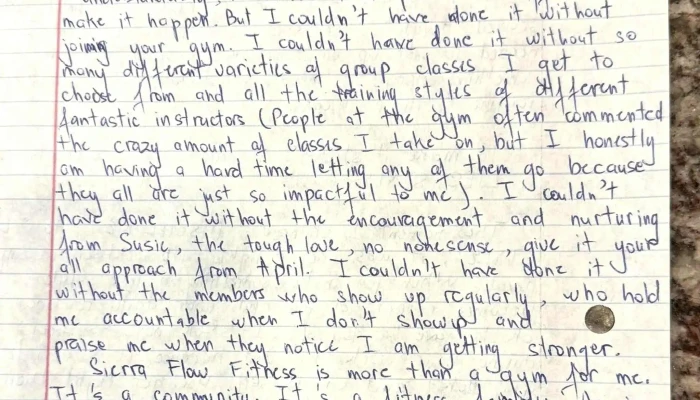 make it happen. But I couldn't have done it without
joining your gym. I couldn't have done it without so
many different varieties of group classes I get to
choose from and all the training styles of different
fantastic instructors (People at the gym often commented
the crazy amount of classes I take on, but I honestly
am having a hard time letting any of them go because
they all are just so impactful to me). I couldn't
have done it without the encouragement and nurturing
from Susie, the tough love, no nonesense, give it your
all approach from April. I couldn't have done it
without the members who show up regularly, who hold
me accountable when I don't showup and
praise me when they notice I am getting stronger.
Sierra Flow Fitness is more than a gym for me.
It's a community. It's a fitness family